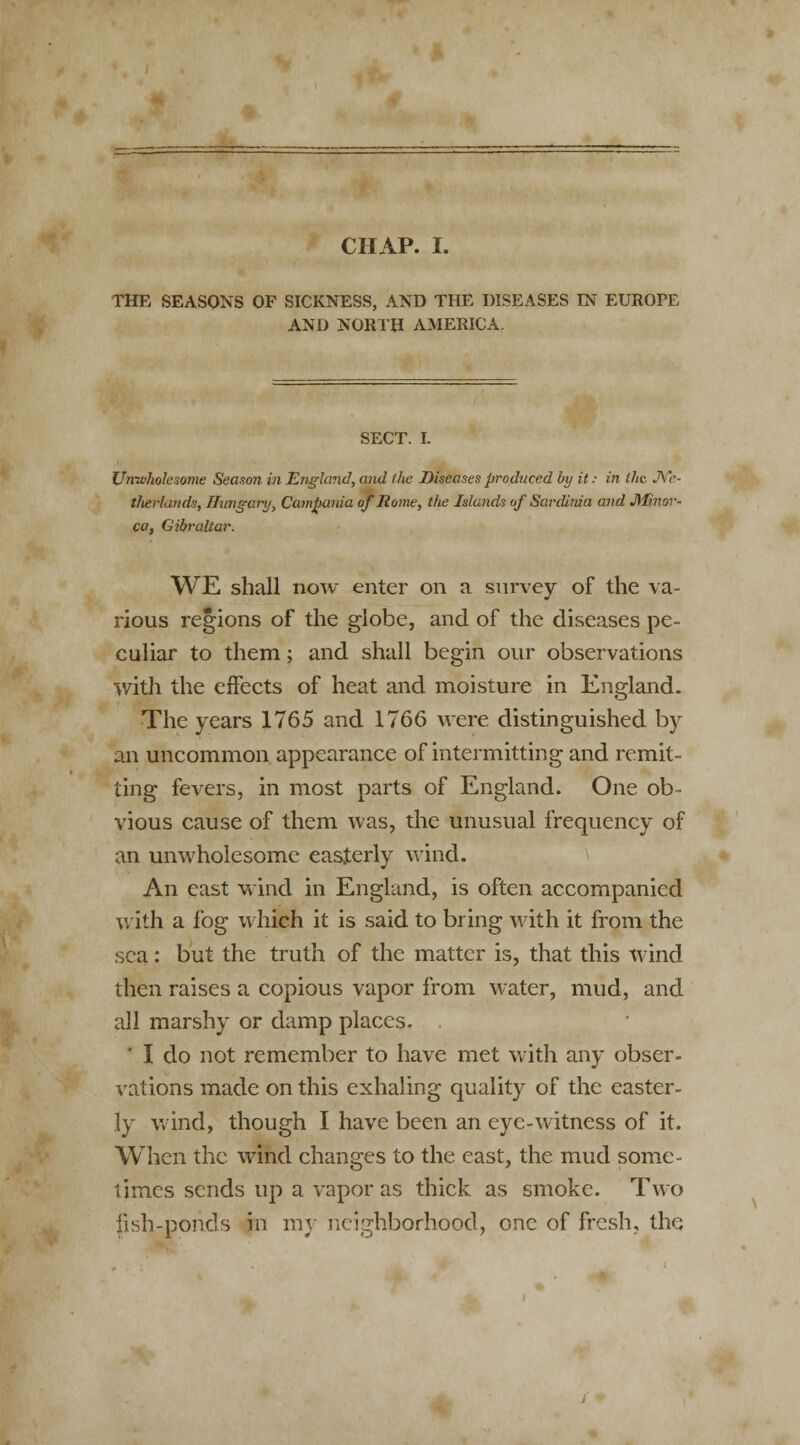 CHAP. I.
THE SEASONS OF SICKNESS, AND THE DISEASES IN EUROPE
AND NORTH AMERICA.
SECT. I.
Unwholesome Season in England, and the Diseases produced by it: in the Ne-
therlands, Hungary, Campania of Rome, the Islands of Sardinia and Minor-
ca, Gibraltar.
WE shall now enter on a survey of the va-
rious regions of the globe, and of the diseases pe-
culiar to them; and shall begin our observations
with the effects of heat and moisture in England.
The years 1765 and 1766 were distinguished by
an uncommon appearance of intermitting and remit-
ting fevers, in most parts of England. One ob-
vious cause of them was, the unusual frequency of
an unwholesome easterly wind.
An east wind in England, is often accompanied
with a fog which it is said to bring with it from the
sea: but the truth of the matter is, that this wind
then raises a copious vapor from water, mud, and
all marshy or damp places.
I do not remember to have met with any obser-
vations made on this exhaling quality of the easter-
ly wind, though I have been an eye-witness of it.
When the wind changes to the east, the mud some-
times sends up a vapor as thick as smoke. Two
fish-ponds in my neighborhood, one of fresh, the